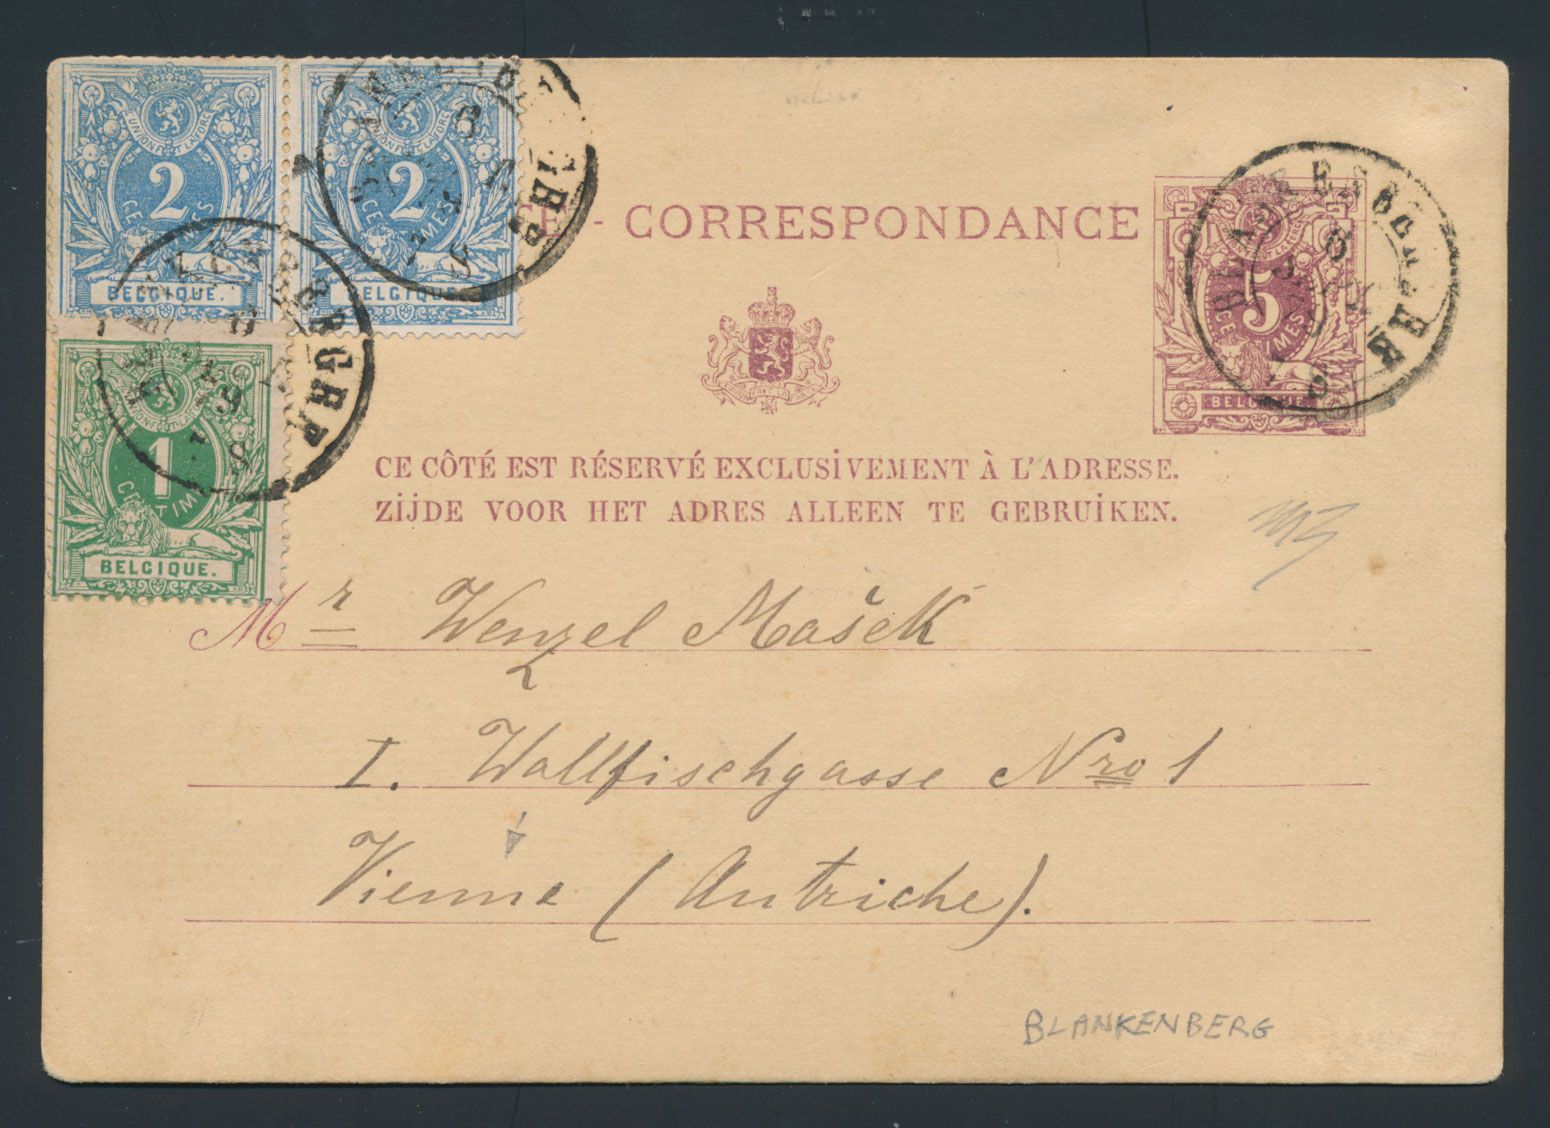 2 CENTIMES
BELGIQUE.
2 CENTIMES
BELGIQUE.
1
BELGIQUE.
- CORRESPONDANCE
5 CENTIMES
BELGIQUE.
CE CÔTÉ EST RÉSERVÉ EXCLUSIVEMENT À L'ADRESSE.
ZIJDE VOOR HET ADRES ALLEEN TE GEBRUIKEN.
Mr Wenzel Mašek
I. Wallfischgasse Nro 1
Vienne (Autriche).
BLANKENBERG